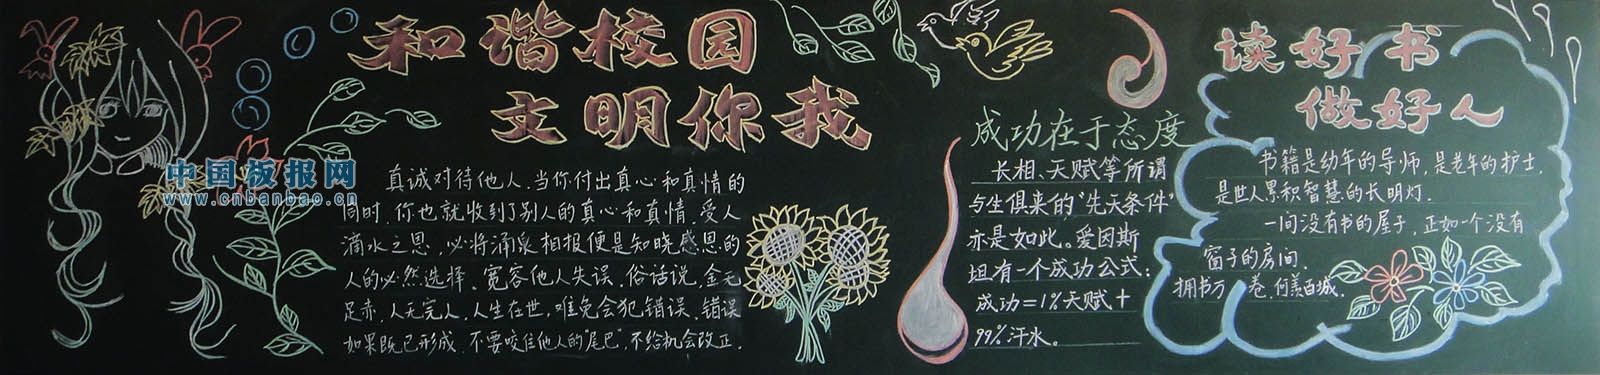 和谐校园
文明你我
真诚对待他人.当你付出真心和真情的
同时.你也就收到了别人的真心和真情.受人
滴水之恩,必将涌泉相报便是知晓感恩的
人的必然选择.宽容他人失误.俗话说,金无
足赤,人无完人.人生在世,难免会犯错误.错误
如果既已形成.不要咬住他人的"尾巴",不给机会改正.
中国板报网
www.cnbanbao.cn
成功在于态度
长相、天赋等所谓
与生俱来的"先天条件"
亦是如此。爱因斯
坦有一个成功公式:
成功=1%天赋+
99%汗水。
读好书
做好人
书籍是幼年的导师,是老年的护士,
是世人累积智慧的长明灯.
一间没有书的屋子,正如一个没有
窗子的房间.
拥书万卷,何羡百城.